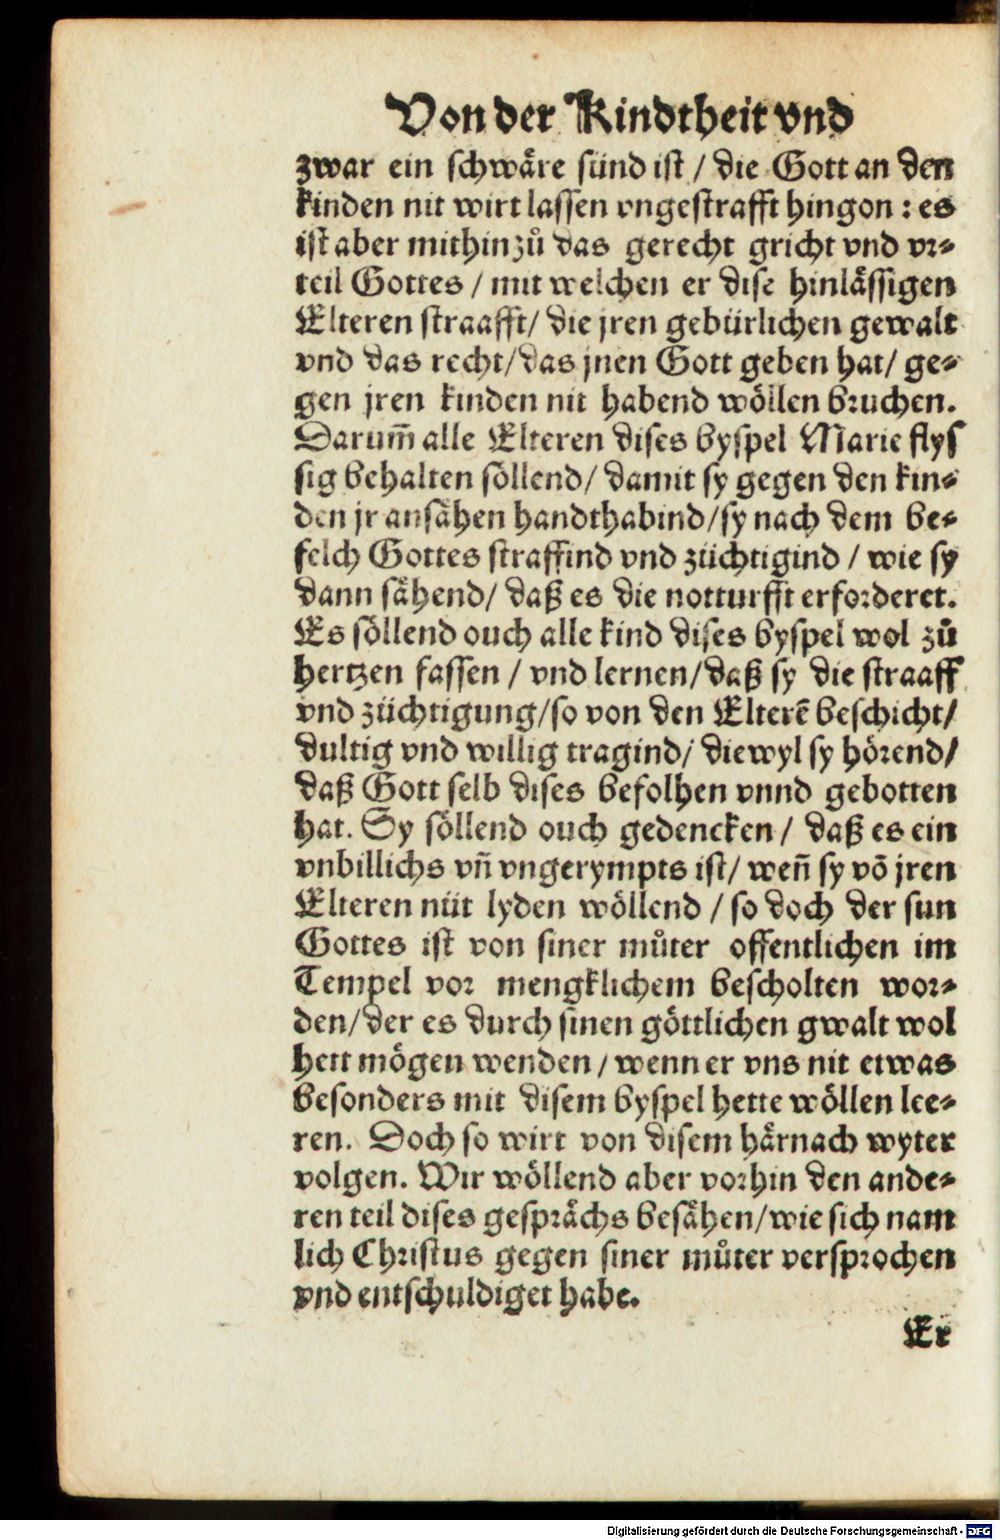 Von der Kindtheit vnd
zwar ein schwäre sünd ist / die Gott an den
kinden nit wirt lassen vngestrafft hingon : es
ist aber mithinzů das gerecht gricht vnd vr⸗
teil Gottes / mit welchen er dise hinlässigen
Elteren straafft/ die jren gebürlichen gewalt
vnd das recht/das jnen Gott geben hat/ ge⸗
gen jren kinden nit habend wöllen bruchen.
Darum̃ alle Elteren dises byspel Marie flys
sig behalten söllend/ damit sy gegen den kin⸗
den jr ansähen handthabind/sy nach dem be⸗
felch Gottes straffind vnd züchtigind / wie sy
dann sähend/ daß es die notturfft erforderet.
Es söllend ouch alle kind dises byspel wol zů
hertzen fassen / vnd lernen/daß sy die straaff
vnd züchtigung/so von den Elterẽ beschicht/
dultig vnd willig tragind/ diewyl sy hörend/
daß Gott selb dises befolhen vnnd gebotten
hat. Sy söllend ouch gedencken / daß es ein
vnbillichs vñ vngerympts ist/ weñ sy võ jren
Elteren nüt lyden wöllend / so doch der sun
Gottes ist von siner můter offentlichen im
Tempel vor mengklichem bescholten wor⸗
den/der es durch sinen göttlichen gwalt wol
hett mögen wenden / wenn er vns nit etwas
besonders mit disem byspel hette wöllen lee⸗
ren. Doch so wirt von disem härnach wyter
volgen. Wir wöllend aber vorhin den ande⸗
ren teil dises gesprächs besähen/wie sich nam
lich Christus gegen siner můter versprochen
vnd entschuldiget habe.
Er
Digitalisierung gefördert durch die Deutsche Forschungsgemeinschaft - DFG